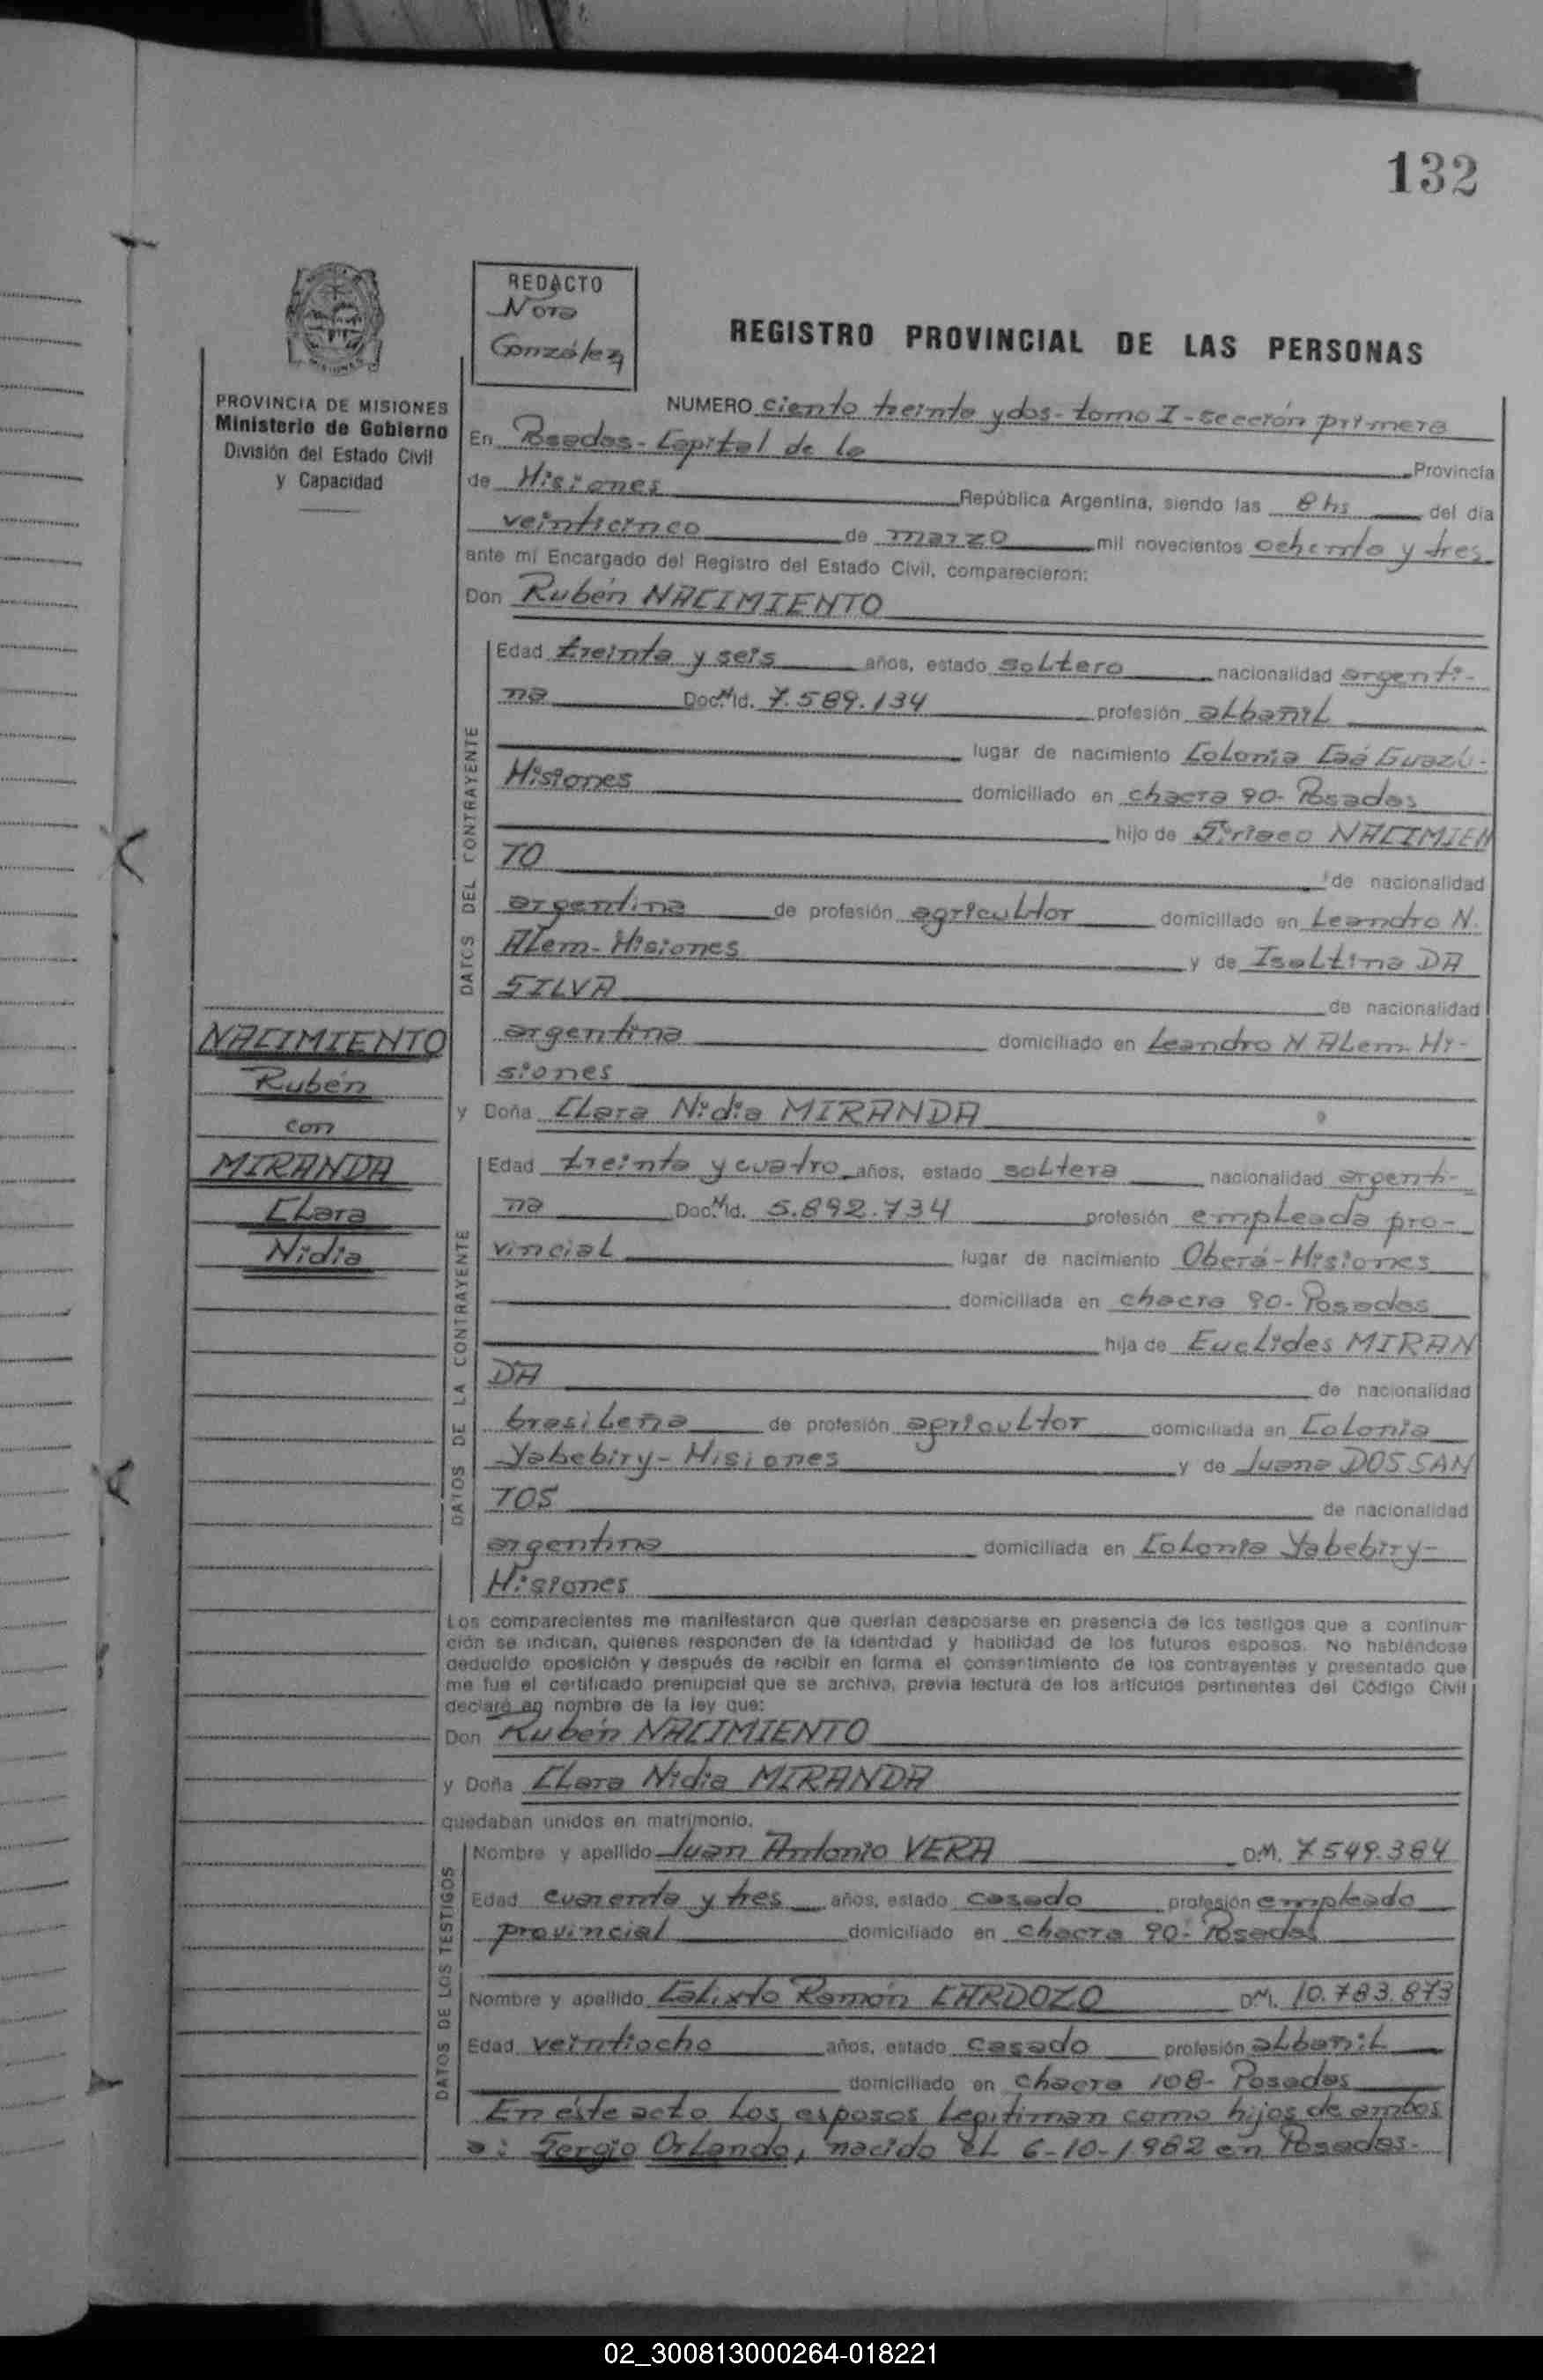 132
REDACTO
Nora
González
REGISTRO PROVINCIAL DE LAS PERSONAS
PROVINCIA DE MISIONES
Ministerio de Gobierno
División del Estado Civil
y Capacidad
NUMERO ciento treinta y dos - tomo I - sección primera
En Posadas - Capital de la Provincia
de Misiones República Argentina, siendo las 8 hs del día
veinticinco de marzo mil novecientos ochenta y tres
ante mí Encargado del Registro del Estado Civil, comparecieron:
Don Rubén NACIMIENTO
DATOS DEL CONTRAYENTE
Edad treinta y seis años, estado soltero nacionalidad argenti-
na Doc. N Id. 7.589.134 profesión albañil
lugar de nacimiento Colonia Caá Guazú-
Misiones domiciliado en chacra 90- Posadas
hijo de Siriaco NACIMIEN
TO de nacionalidad
argentina de profesión agricultor domiciliado en Leandro N.
Alem - Misiones y de Isoltina DA
SILVA de nacionalidad
argentina domiciliado en Leandro N Alem- Mi-
siones
NACIMIENTO
Rubén
con
MIRANDA
Clara
Nidia
y Doña Clara Nidia MIRANDA
DATOS DE LA CONTRAYENTE
Edad treinta y cuatro años, estado soltera nacionalidad argenti-
na Doc. N Id. 5.892.734 profesión empleada pro-
vincial lugar de nacimiento Oberá - Misiones
domiciliada en chacra 90- Posadas
hija de Euclides MIRAN
DA de nacionalidad
brasileña de profesión agricultor domiciliada en Colonia
Yabebiry - Misiones y de Juana DOS SAN
TOS de nacionalidad
argentina domiciliada en Colonia Yabebiry-
Misiones
Los comparecientes me manifestaron que querían desposarse en presencia de los testigos que a continua-
ción se indican, quienes responden de la identidad y habilidad de los futuros esposos. No habiéndose
deducido oposición y después de recibir en forma el consentimiento de los contrayentes y presentado que
me fue el certificado prenupcial que se archiva, previa lectura de los artículos pertinentes del Código Civil
declaré en nombre de la ley que:
Don Rubén NACIMIENTO
y Doña Clara Nidia MIRANDA
quedaban unidos en matrimonio.
DATOS DE LOS TESTIGOS
Nombre y apellido Juan Antonio VERA D.M. 7.549.384
Edad cuarenta y tres años, estado casado profesión empleado
provincial domiciliado en chacra 90- Posadas
Nombre y apellido Calixto Ramón CARDOZO D.M. 10.783.873
Edad veintiocho años, estado casado profesión albañil
domiciliado en chacra 108- Posadas
En éste acto los esposos legitiman como hijos de ambos
a: Sergio Orlando, nacido el 6-10-1982 en Posadas.
02_300813000264-018221